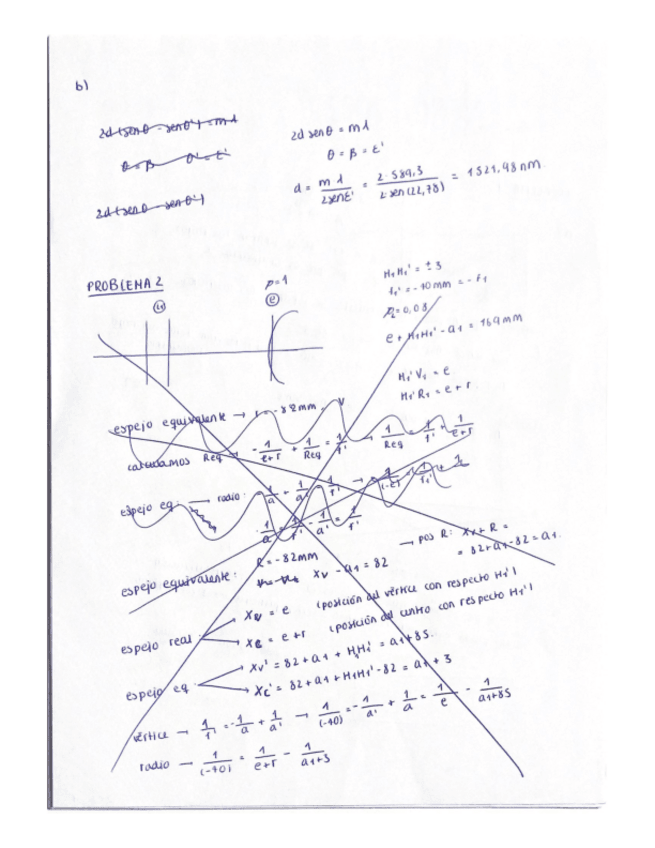 b)
2d (senθ - senθ') = mλ
θ = β θ' = ε'
2d (senθ - senθ')
2d senθ = mλ
θ = β = ε'
d = mλ / 2senε' = 2·589,3 / 2sen(22,78) = 1521,98 nm.
PROBLEMA 2
p=1
(e)
H₁H₁' = ± 3
f₁' = -40mm = -f₁
e + H₁H₁' - a₁ = 169mm
H₁'V₁ = e
H₁'R₁ = e + r
espejo equivalente → r = -82mm.
calculamos Req → -1/(e+r) + 1/Req = 1/f' → 1/Req = 1/f' + 1/(e+r)
espejo eq: → radio:
R = -82mm
espejo equivalente: Xv - a₁ = 82 → pos R: Xv + R =
= 82 + a₁ - 82 = a₁.
espejo real: → Xv = e (posición del vértice con respecto H₁')
→ Xc = e+r (posición del centro con respecto H₁')
espejo eq: → Xv' = 82 + a₁ + H₁H₁' = a₁+85.
→ Xc' = 82 + a₁ + H₁H₁' - 82 = a₁ + 3
vértice → 1/f' = -1/a + 1/a' → 1/(-40) = -1/a' + 1/a = 1/e - 1/(a₁+85)
radio → 1/(-40) = 1/(e+r) - 1/(a₁+3)